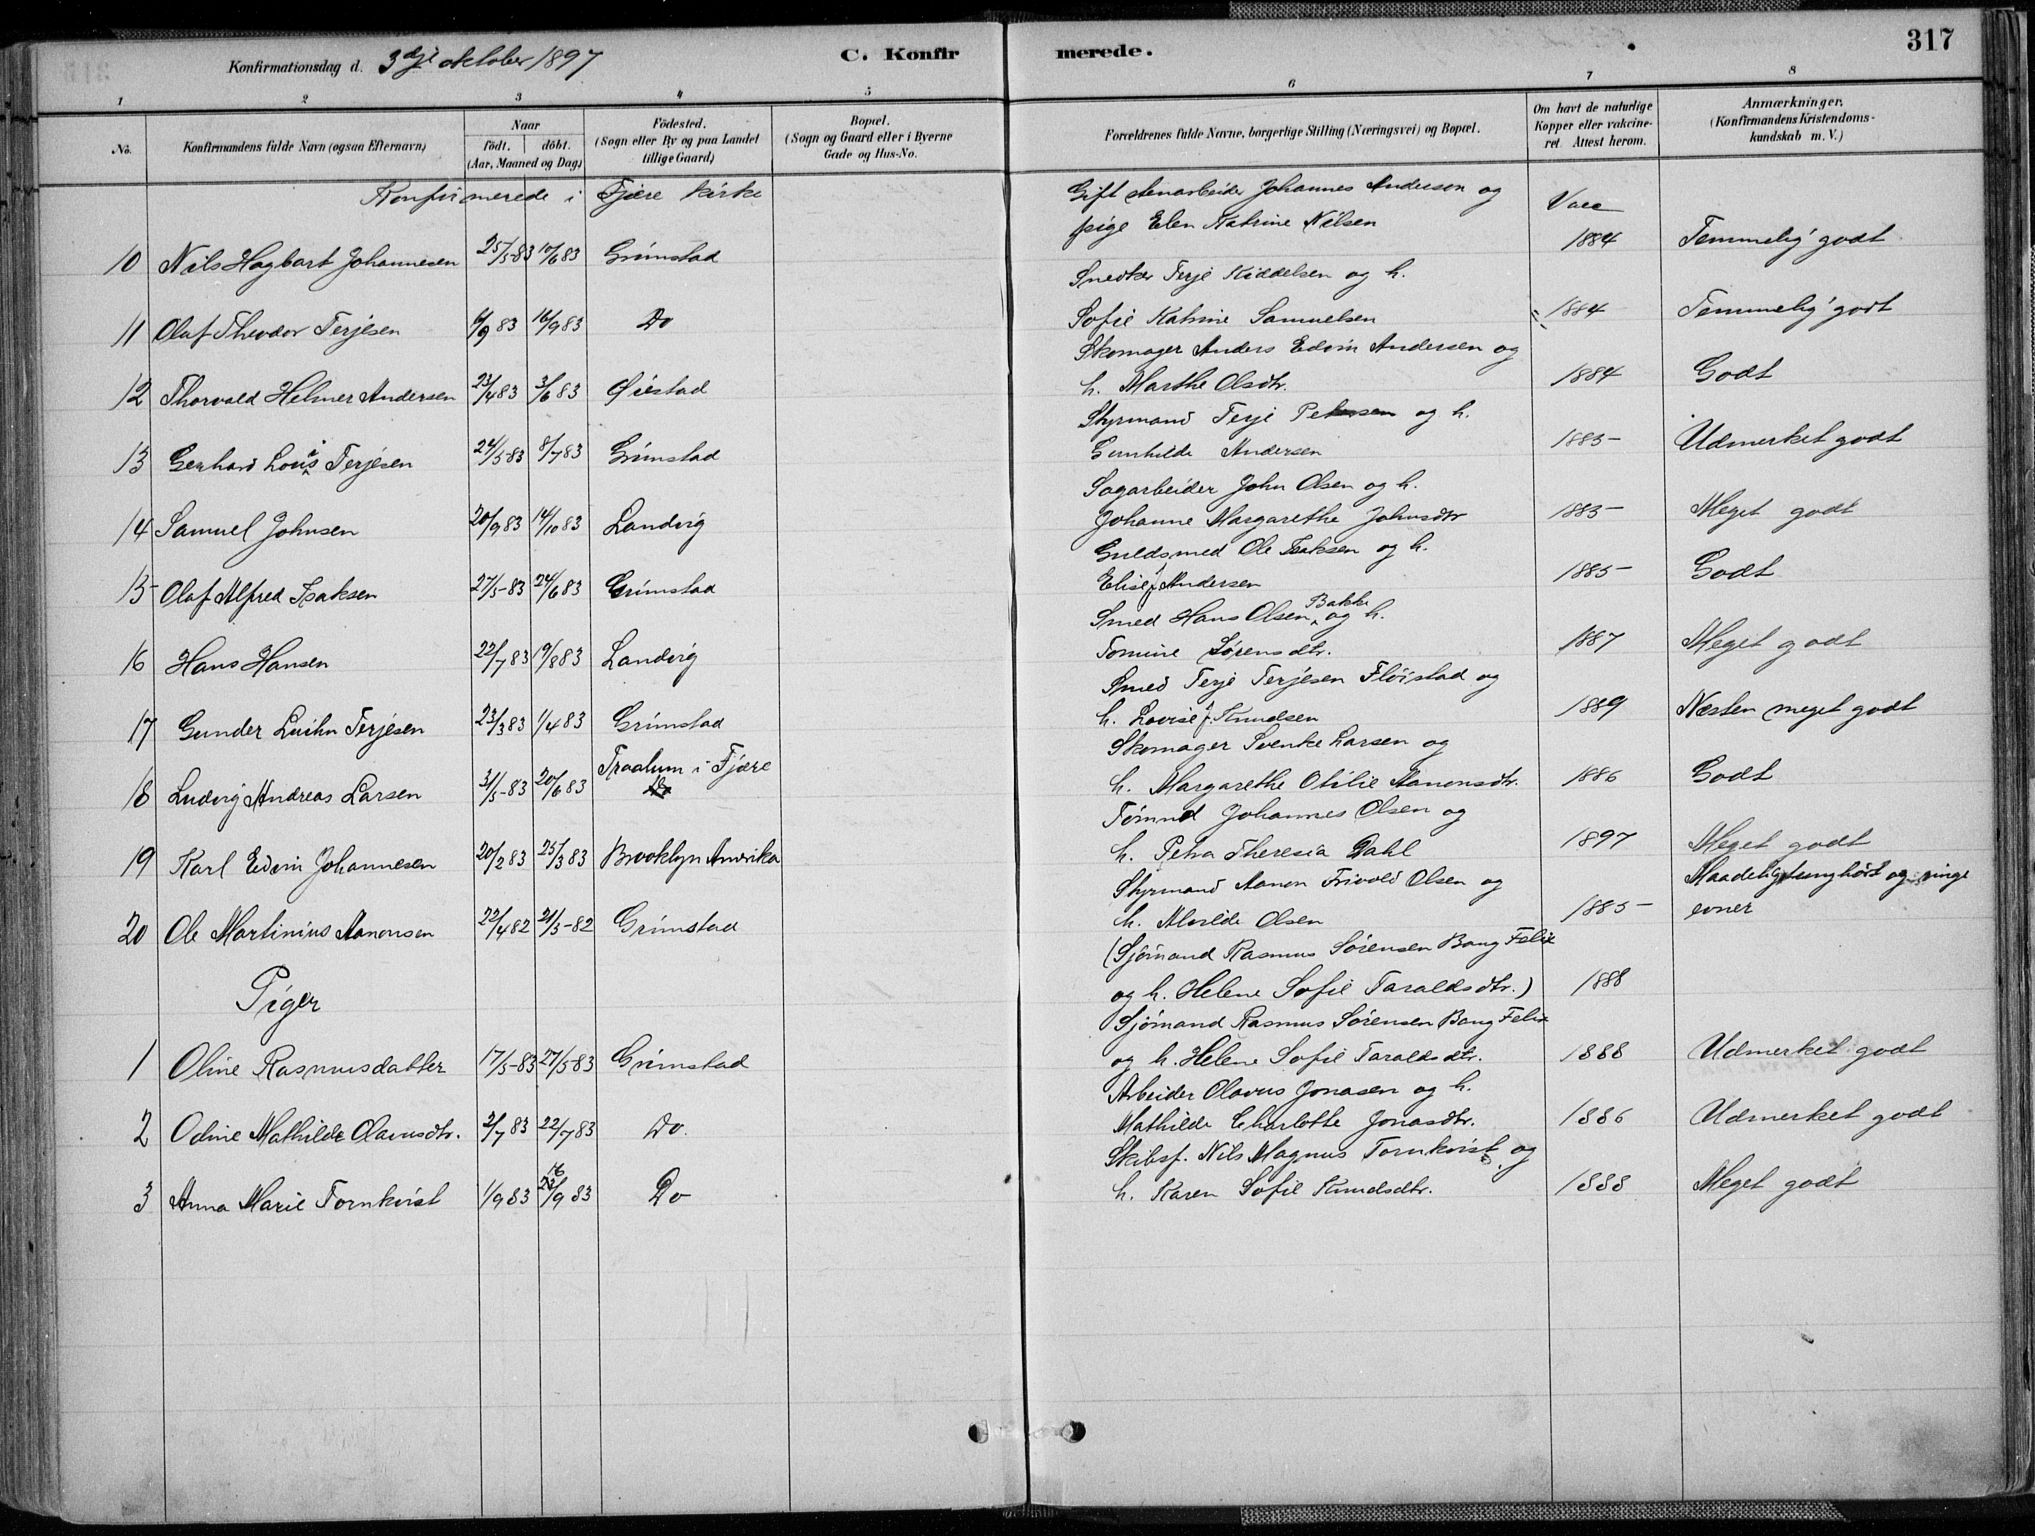 Konfirmationsdag d. 3dje oktober 1897
C. Konfirmerede.
317
1 2 3 4 5 6 7 8
No. Konfirmandens fulde Navn (ogsaa Efternavn) Naar födt. döbt. (Aar, Maaned og Dag) Födested. (Sogn eller By og paa Landet tillige Gaard) Bopæl. (Sogn og Gaard eller i Byerne Gade og Hus-No. Forældrenes fulde Navne, borgerlige Stilling (Næringsvei) og Bopæl. Om havt de naturlige Kopper eller vakcineret. Attest herom. Anmærkninger. (Konfirmandens Kristendomskundskab m. V.)
Konfirmerede i Fjære kirke
Gift stenarbeider Johannes Anderson og Vacc
pige Elen Katrine Nilsen
10 Nils Hagbart Johannesen 25/5-83 10/6 83 Grimstad 1884 Temmelig godt
Snedker Terje Kiddelsen og h.
11 Olaf Theodor Terjesen 6/9 83 16/9 83 Do Sofie Katrine Samuelsen 1884 Temmelig godt
Skomager Anders Edvin Andersen og
12 Thorvald Helmer Andersen 23/4 83 3/6 83 Øiestad h. Marthe Olsdtr. 1884 Godt
Styrmand Terje Petersen og h.
13 Gerhard Louis Terjesen 24/5-83 8/7 83 Grimstad Gunhilde Andersen 1885- Udmerket godt
Sagarbeider John Olsen og h.
14 Samuel Johnsen 20/9 83 14/10 83 Landvig Johanne Margarethe Johnsdtr 1885- Meget godt
Guldsmed Ole Isaksen og h.
15- Olaf Alfred Isaksen 27/5-83 24/6 83 Grimstad Elise f. Andersen 1885- Godt
Smed Hans Olsen Bakke og h.
16 Hans Hansen 22/7 83 19/8 83 Landvig Tomine Sørensdtr. 1887 Meget godt
Smed Terje Terjesen Fløistad og
17 Gunder Luihn Terjesen 23/3 83 1/4 83 Grimstad h. Lovise f. Knudsen 1889 Næsten meget godt
Skomager Svenke Larsen og
18 Ludvig Andreas Larsen 31/5-83 20/6 83 Traalum i Fjære h. Margarethe Otilie Aanonsdtr. 1886 Godt
Tömmd Johannes Olsen og
19 Karl Edvin Johannesen 20/2 83 25/3 83 Brooklyn Amerika h. Petra Theresia Dahl 1897 Meget godt
Styrmand Aanon Frivold Olsen og Maadelig tunghört og ringe
20 Ole Martinius Aanonsen 22/4 82 21/5-82 Grimstad h. Alvilde Olsen 1885- evner
(Sjömand Rasmus Sørensen Bang Felix
Piger og h. Helene Sofie Taraldsdtr.) 1888
Sjömand Rasmus Sørensen Bang Felix
1 Oline Rasmusdatter 17/5-83 27/5-83 Grimstad og h. Helene Sofie Taraldsdtr. 1888 Udmerket godt
Arbeider Olavus Jonasen og h.
2 Odine Mathilde Olavusdtr. 2/7 83 22/7 83 Do. Mathilde Charlotte Jonasdtr. 1886 Udmerket godt
Skibsf. Nils Magnus Tornkvist og
3 Anna Marie Tornkvist 1/9 83 16/9 83 Do h. Karen Sofie Knudsdtr. 1888 Meget godt